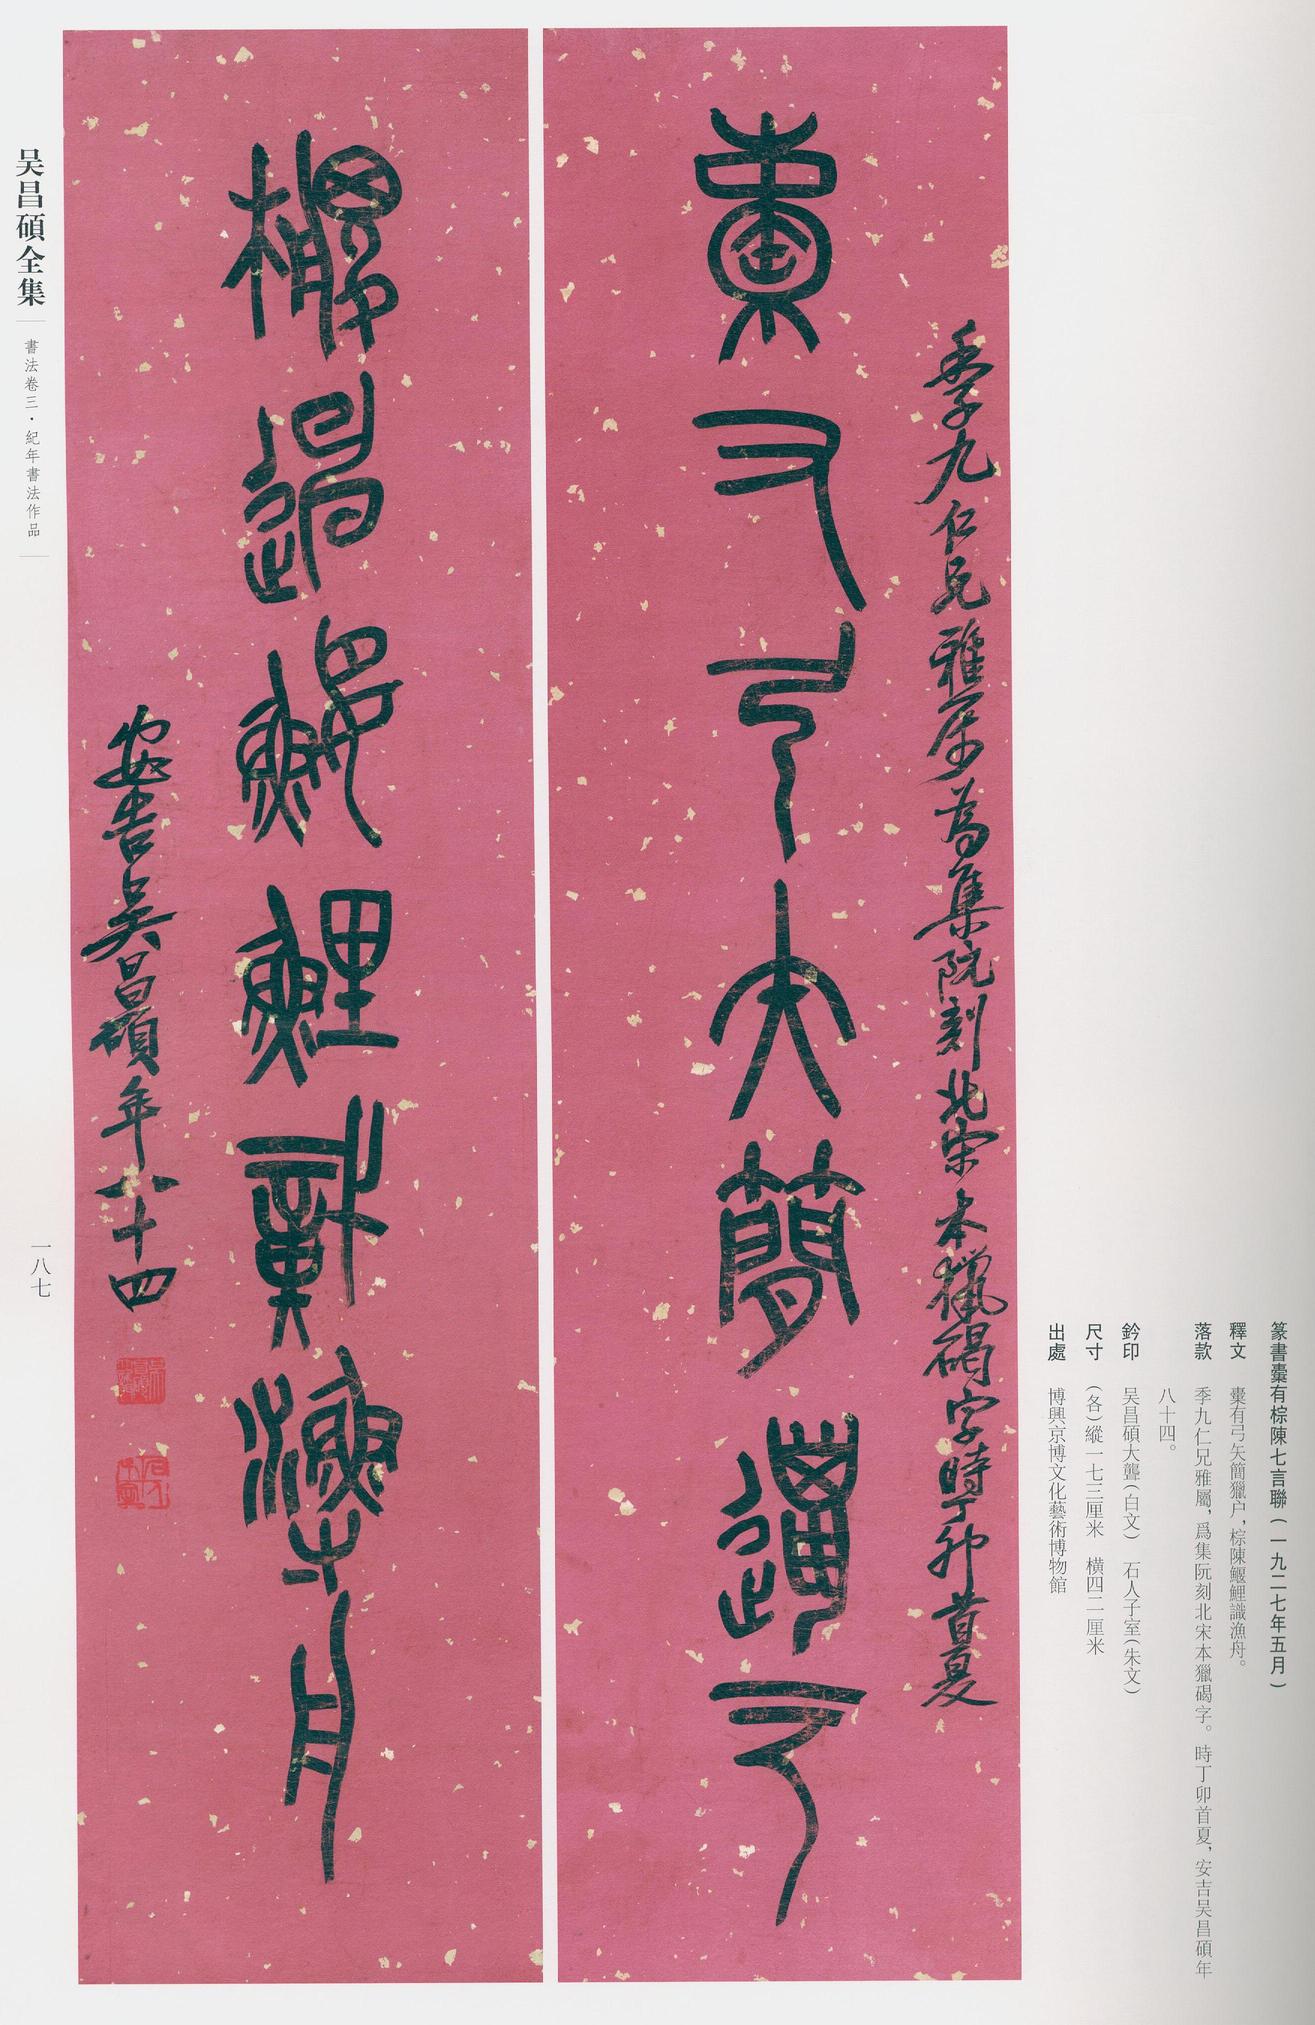 篆書橐有棕陳七言聯(一九二七年五月)
釋文 橐有弓矢簡獵户,棕陳鰋鯉識漁舟。
落款 季九仁兄雅屬,爲集阮刻北宋本獵碣字。時丁卯首夏,安吉吴昌碩年
八十四。
鈐印 吴昌碩大聾(白文) 石人子室(朱文)
尺寸 (各)縱一七三厘米 横四二厘米
出處 博興京博文化藝術博物館
季九仁兄雅属為集阮刻北宋本獵碣字時丁卯首夏
橐又弓矢簡獵户
棕陳鰋鯉識漁舟
安吉吴昌碩年八十四
吴昌碩全集
書法卷三·紀年書法作品
一八七